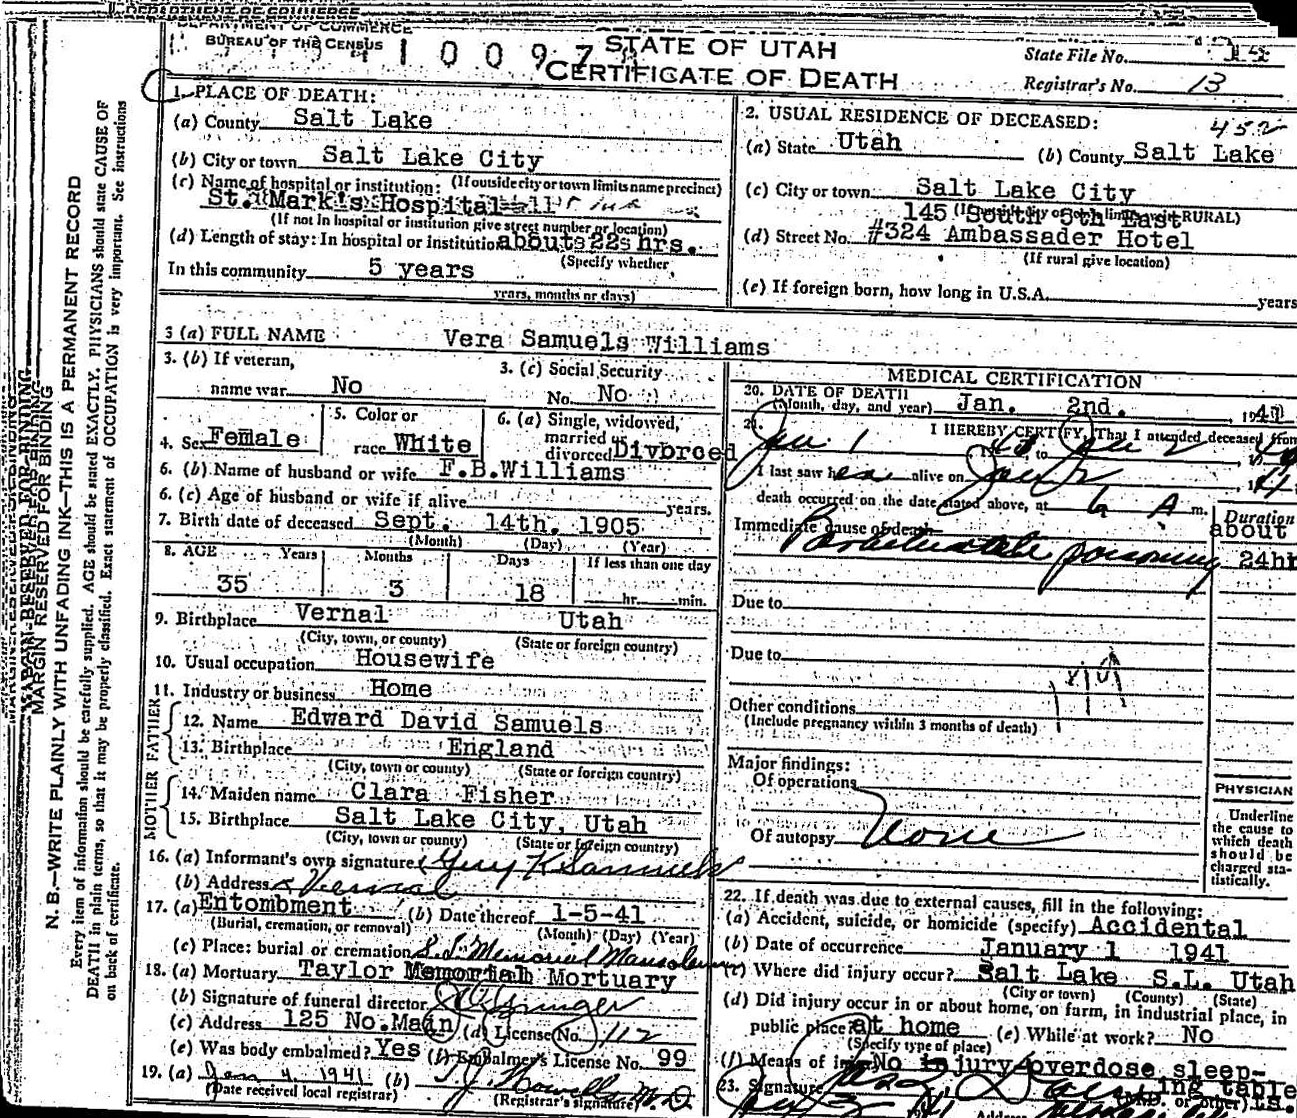 DEPARTMENT OF COMMERCE
BUREAU OF THE CENSUS
STATE OF UTAH
CERTIFICATE OF DEATH
State File No.
Registrar's No. 13
1. PLACE OF DEATH:
(a) County Salt Lake
(b) City or town Salt Lake City
(c) Name of hospital or institution: (If outside city or town limits name precinct)
St. Mark's Hospital
(If not in hospital or institution give street number or location)
(d) Length of stay: In hospital or institution about 22 hrs.
(Specify whether
In this community 5 years
years, months or days)
2. USUAL RESIDENCE OF DECEASED:
452
(a) State Utah (b) County Salt Lake
(c) City or town Salt Lake City
145 South 5th East
(d) Street No. #324 Ambassader Hotel
(If rural give location)
(e) If foreign born, how long in U.S.A. years
3 (a) FULL NAME Vera Samuels Williams
3. (b) If veteran, name war No
3. (c) Social Security No. No
4. Sex Female
5. Color or race White
6. (a) Single, widowed, married or divorced Divorced
6. (b) Name of husband or wife F.B.Williams
6. (c) Age of husband or wife if alive years.
7. Birth date of deceased Sept. 14th. 1905
(Month) (Day) (Year)
8. AGE Years Months Days If less than one day
35 3 18 hr. min.
9. Birthplace Vernal Utah
(City, town, or county) (State or foreign country)
10. Usual occupation Housewife
11. Industry or business Home
FATHER
12. Name Edward David Samuels
13. Birthplace England
(City, town or county) (State or foreign country)
MOTHER
14. Maiden name Clara Fisher
15. Birthplace Salt Lake City, Utah
(City, town or county) (State or foreign country)
16. (a) Informant's own signature Guy K Samuels
(b) Address Vernal
17. (a) Entombment (b) Date thereof 1-5-41
(Burial, cremation, or removal) (Month) (Day) (Year)
(c) Place: burial or cremation S.L. Memorial Mausoleum
18. (a) Mortuary Taylor Memorial Mortuary
(b) Signature of funeral director
(c) Address 125 No. Main (d) License No. 112
(e) Was body embalmed? Yes (f) Embalmer's License No. 99
19. (a) Jan 4 1941 (b) M.D.
(Date received local registrar) (Registrar's signature)
MEDICAL CERTIFICATION
20. DATE OF DEATH
(Month, day, and year) Jan. 2nd. 1941
21. I HEREBY CERTIFY, That I attended deceased from
Jan. 1 to Jan 2
I last saw her alive on Jan 2
death occurred on the date stated above, at 6 A m.
Duration
Immediate cause of death about
Barbiturate poisoning 24hr
Due to
Due to
Other conditions
(Include pregnancy within 3 months of death)
Major findings:
Of operations
Of autopsy None
PHYSICIAN
Underline
the cause to
which death
should be
charged sta-
tistically.
22. If death was due to external causes, fill in the following:
(a) Accident, suicide, or homicide (specify) Accidental
(b) Date of occurrence January 1 1941
(c) Where did injury occur? Salt Lake S.L. Utah
(City or town) (County) (State)
(d) Did injury occur in or about home, on farm, in industrial place, in
public place? at home (e) While at work? No
(Specify type of place)
(f) Means of injury No injury overdose sleep-
ing tablets.
23. Signature (M.D. or other)
MARGIN RESERVED FOR BINDING
N. B.—WRITE PLAINLY WITH UNFADING INK—THIS IS A PERMANENT RECORD
Every item of information should be carefully supplied. AGE should be stated EXACTLY. PHYSICIANS should state CAUSE OF
DEATH in plain terms, so that it may be properly classified. Exact statement of OCCUPATION is very important. See instructions
on back of certificate.